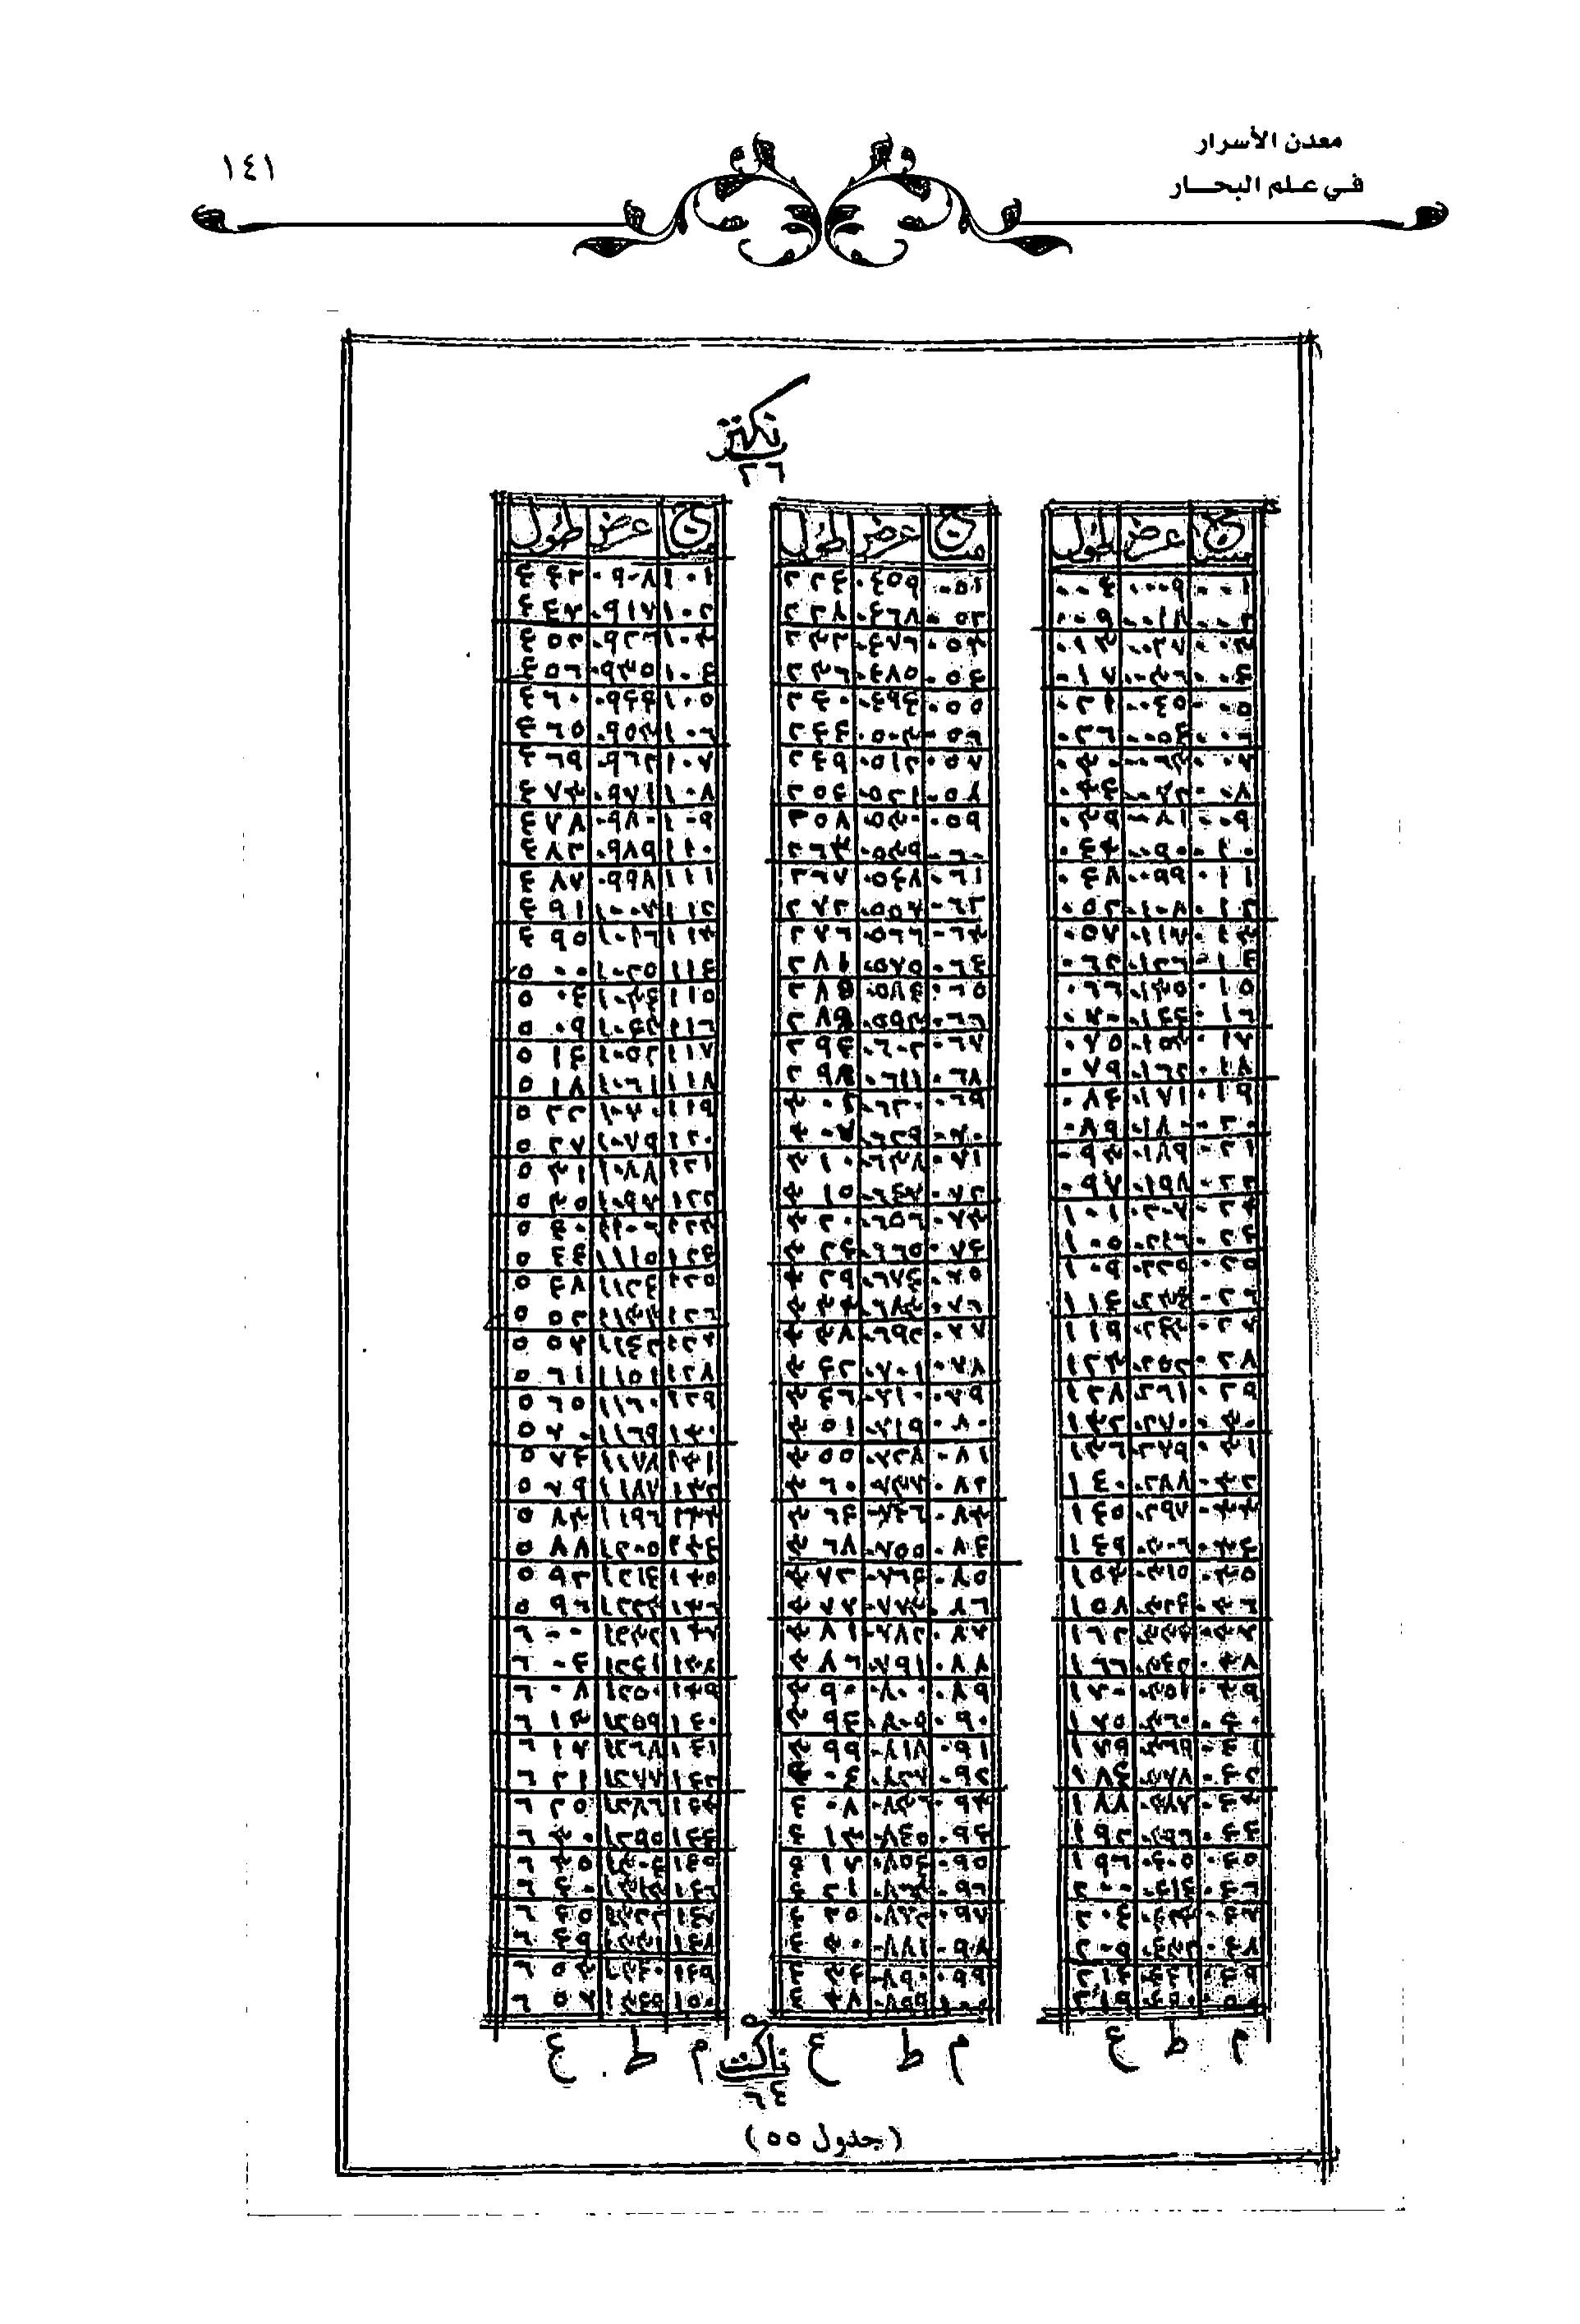 معدن الأسرار
في علم البحـار
١٤١
٢٦
عرض طول
٠٠١ ٠٠٠٩ ٠٠٤
٠٠٢ ٠٠١٨ ٠٠٩
٠٠٣ ٠٠٢٧ ٠١٣
٠٠٤ ٠٠٣٦ ٠١٧
٠٠٥ ٠٠٤٥ ٠٢١
٠٠٦ ٠٠٥٤ ٠٢٦
٠٠٧ ٠٠٦٣ ٠٣٠
٠٠٨ ٠٠٧٢ ٠٣٤
٠٠٩ ٠٠٨١ ٠٣٩
٠١٠ ٠٠٩٠ ٠٤٣
٠١١ ٠٠٩٩ ٠٤٨
٠١٢ ٠١٠٨ ٠٥٢
٠١٣ ٠١١٧ ٠٥٧
٠١٤ ٠١٢٦ ٠٦٢
٠١٥ ٠١٣٥ ٠٦٦
٠١٦ ٠١٤٤ ٠٧٠
٠١٧ ٠١٥٣ ٠٧٥
٠١٨ ٠١٦٢ ٠٧٩
٠١٩ ٠١٧١ ٠٨٤
٠٢٠ ٠١٨٠ ٠٨٩
٠٢١ ٠١٨٩ ٠٩٣
٠٢٢ ٠١٩٨ ٠٩٧
٠٢٣ ٠٢٠٧ ١٠١
٠٢٤ ٠٢١٦ ١٠٥
٠٢٥ ٠٢٢٥ ١٠٩
٠٢٦ ٠٢٣٤ ١١٤
٠٢٧ ٠٢٤٣ ١١٩
٠٢٨ ٠٢٥٢ ١٢٣
٠٢٩ ٠٢٦١ ١٢٨
٠٣٠ ٠٢٧٠ ١٣٢
٠٣١ ٠٢٧٩ ١٣٦
٠٣٢ ٠٢٨٨ ١٤٠
٠٣٣ ٠٢٩٧ ١٤٥
٠٣٤ ٠٣٠٦ ١٤٩
٠٣٥ ٠٣١٥ ١٥٣
٠٣٦ ٠٣٢٤ ١٥٨
٠٣٧ ٠٣٣٣ ١٦٢
٠٣٨ ٠٣٤٢ ١٦٦
٠٣٩ ٠٣٥١ ١٧٠
٠٤٠ ٠٣٦٠ ١٧٥
٠٤١ ٠٣٦٩ ١٧٩
٠٤٢ ٠٣٧٨ ١٨٤
٠٤٣ ٠٣٨٧ ١٨٨
٠٤٤ ٠٣٩٦ ١٩٢
٠٤٥ ٠٤٠٥ ١٩٦
٠٤٦ ٠٤١٤ ٢٠٠
٠٤٧ ٠٤٢٣ ٢٠٤
٠٤٨ ٠٤٣٢ ٢٠٩
٠٤٩ ٠٤٤١ ٢١٤
٠٥٠
م ط ع
عرض طول
٠٥١ ٠٤٥٩ ٢٢٤
٠٥٢ ٠٤٦٨ ٢٢٨
٠٥٣ ٠٤٧٦ ٢٣٢
٠٥٤ ٠٤٨٥ ٢٣٦
٠٥٥ ٠٤٩٤ ٢٤٠
٠٥٦ ٠٥٠٣ ٢٤٤
٠٥٧ ٠٥١٢ ٢٤٩
٠٥٨ ٠٥٢١ ٢٥٤
٠٥٩ ٠٥٣٠ ٢٥٨
٠٦٠ ٠٥٣٩ ٢٦٣
٠٦١ ٠٥٤٨ ٢٦٧
٠٦٢ ٠٥٥٧ ٢٧٢
٠٦٣ ٠٥٦٦ ٢٧٦
٠٦٤ ٠٥٧٥ ٢٨١
٠٦٥ ٠٥٨٤
٠٦٦ ٠٥٩٣
٠٦٧ ٠٦٠٢ ٢٩٤
٠٦٨ ٠٦١١ ٢٩٨
٠٦٩ ٠٦٢٠ ٣٠٢
٠٧٠ ٠٦٢٩
٠٧١ ٠٦٣٨ ٣١٠
٠٧٢ ٠٦٤٧ ٣١٥
٠٧٣ ٠٦٥٦ ٣٢٠
٠٧٤ ٠٦٦٥ ٣٢٤
٠٧٥ ٠٦٧٤ ٣٢٩
٠٧٦ ٠٦٨٣ ٣٣٣
٠٧٧ ٠٦٩٢ ٣٣٨
٠٧٨ ٠٧٠١ ٣٤٢
٠٧٩ ٠٧١٠ ٣٤٦
٠٨٠ ٠٧١٩ ٣٥١
٠٨١ ٠٧٢٨ ٣٥٥
٠٨٢ ٠٧٣٧ ٣٦٠
٠٨٣ ٠٧٤٦ ٣٦٤
٠٨٤ ٠٧٥٥ ٣٦٨
٠٨٥ ٠٧٦٤ ٣٧٢
٠٨٦ ٠٧٧٣ ٣٧٧
٠٨٧ ٠٧٨٢ ٣٨١
٠٨٨ ٠٧٩١ ٣٨٦
٠٨٩ ٠٨٠٠ ٣٩٠
٠٩٠ ٠٨٠٩ ٣٩٤
٠٩١ ٠٨١٨ ٣٩٩
٠٩٢ ٠٨٢٧
٠٩٣ ٠٨٣٦ ٤٠٨
٠٩٤ ٠٨٤٥ ٤١٣
٠٩٥ ٠٨٥٤ ٤١٧
٠٩٦ ٠٨٦٣ ٤٢١
٠٩٧ ٠٨٧٢ ٤٢٥
٠٩٨ ٠٨٨١ ٤٣٠
٠٩٩ ٠٨٩٠ ٤٣٤
١٠٠ ٠٨٩٩ ٤٣٨
م ط ع
عرض طول
١٠١ ٠٩٠٨ ٤٤٣
١٠٢ ٠٩١٧ ٤٤٧
١٠٣ ٠٩٢٦ ٤٥٢
١٠٤ ٠٩٣٥ ٤٥٦
١٠٥ ٠٩٤٤ ٤٦٠
١٠٦ ٠٩٥٣ ٤٦٥
١٠٧ ٠٩٦٢ ٤٦٩
١٠٨ ٠٩٧١ ٤٧٣
١٠٩ ٠٩٨٠ ٤٧٨
١١٠ ٠٩٨٩ ٤٨٢
١١١ ٠٩٩٨ ٤٨٧
١١٢ ١٠٠٧ ٤٩١
١١٣ ١٠١٦ ٤٩٥
١١٤ ١٠٢٥ ٥٠٠
١١٥ ١٠٣٤ ٥٠٤
١١٦ ١٠٤٣ ٥٠٩
١١٧ ١٠٥٢ ٥١٤
١١٨ ١٠٦١ ٥١٨
١١٩ ١٠٧٠ ٥٢٢
١٢٠ ١٠٧٩ ٥٢٧
١٢١ ١٠٨٨ ٥٣١
١٢٢ ١٠٩٧ ٥٣٥
١٢٣ ١١٠٦ ٥٤٠
١٢٤ ١١١٥ ٥٤٤
١٢٥ ١١٢٤ ٥٤٨
١٢٦ ١١٣٣ ٥٥٢
١٢٧ ١١٤٢ ٥٥٧
١٢٨ ١١٥١ ٥٦١
١٢٩ ١١٦٠ ٥٦٥
١٣٠ ١١٦٩ ٥٧٠
١٣١ ١١٧٨ ٥٧٤
١٣٢ ١١٨٧ ٥٧٩
١٣٣ ١١٩٦ ٥٨٣
١٣٤ ١٢٠٥ ٥٨٨
١٣٥ ١٢١٤ ٥٩٢
١٣٦ ١٢٢٣ ٥٩٦
١٣٧ ١٢٣٢ ٦٠٠
١٣٨ ١٢٤١ ٦٠٤
١٣٩ ١٢٥٠ ٦٠٨
١٤٠ ١٢٥٩ ٦١٣
١٤١ ١٢٦٨ ٦١٧
١٤٢ ١٢٧٧ ٦٢١
١٤٣ ١٢٨٦ ٦٢٥
١٤٤ ١٢٩٥ ٦٣٠
١٤٥ ١٣٠٤ ٦٣٥
١٤٦ ١٣١٣ ٦٤٠
١٤٧ ١٣٢٢ ٦٤٥
١٤٨ ١٣٣١ ٦٤٩
١٤٩ ١٣٤٠ ٦٥٣
١٥٠ ١٣٤٩ ٦٥٧
م ط ع
(جدول ٥٥)